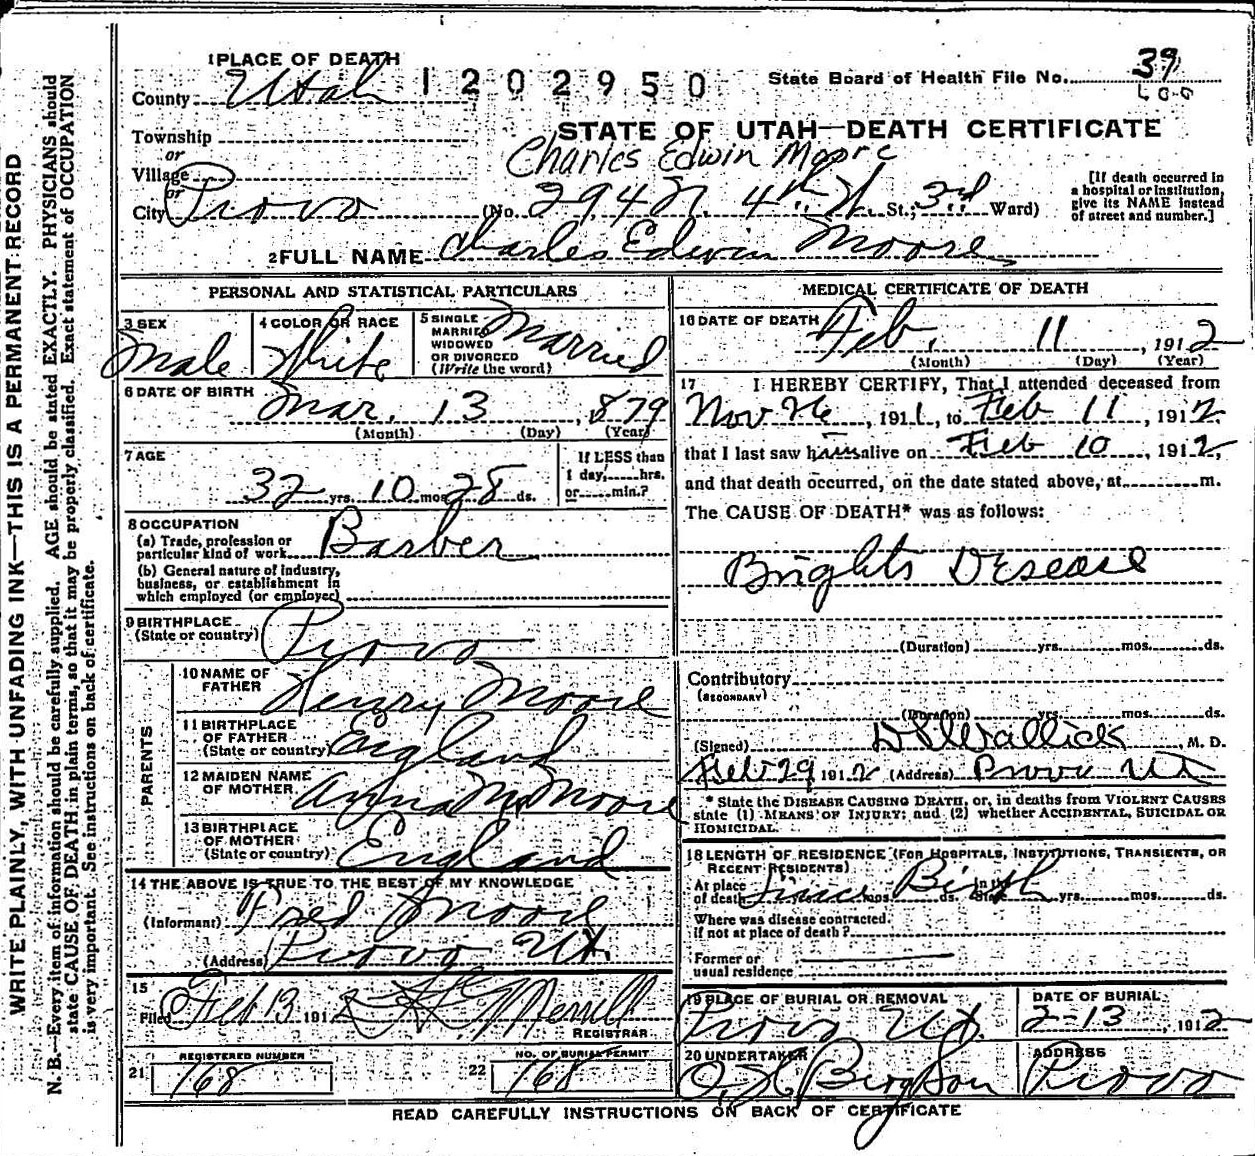 WRITE PLAINLY, WITH UNFADING INK—THIS IS A PERMANENT RECORD
N. B.—Every item of information should be carefully supplied. AGE should be stated EXACTLY. PHYSICIANS should
state CAUSE OF DEATH in plain terms, so that it may be properly classified. Exact statement of OCCUPATION
is very important. See instructions on back of certificate.
1 PLACE OF DEATH
County Utah 1202950 State Board of Health File No. 39
Township
STATE OF UTAH—DEATH CERTIFICATE
or
Village
Charles Edwin Moore
or
City Provo (No. 294 N. 4th W. St.; 3rd Ward)
[If death occurred in
a hospital or institution,
give its NAME instead
of street and number.]
2 FULL NAME Charles Edwin Moore
PERSONAL AND STATISTICAL PARTICULARS
3 SEX
Male
4 COLOR OR RACE
White
5 SINGLE
MARRIED
WIDOWED
OR DIVORCED
(Write the word)
Married
6 DATE OF BIRTH
Mar. 13, 879
(Month) (Day) (Year)
7 AGE
32 yrs. 10 mos. 28 ds.
If LESS than
1 day,......hrs.
or......min.?
8 OCCUPATION
(a) Trade, profession or
particular kind of work Barber
(b) General nature of industry,
business, or establishment in
which employed (or employer)
9 BIRTHPLACE
(State or country) Provo
PARENTS
10 NAME OF
FATHER Henry Moore
11 BIRTHPLACE
OF FATHER
(State or country) England
12 MAIDEN NAME
OF MOTHER Anna M Moore
13 BIRTHPLACE
OF MOTHER
(State or country) England
14 THE ABOVE IS TRUE TO THE BEST OF MY KNOWLEDGE
(Informant) Fred Moore
(Address) Provo Ut.
15
Filed Feb 13 191 Merrill
REGISTRAR
REGISTERED NUMBER
21 168
NO. OF BURIAL PERMIT
22 168
MEDICAL CERTIFICATE OF DEATH
16 DATE OF DEATH
Feb. 11, 1912
(Month) (Day) (Year)
17 I HEREBY CERTIFY, That I attended deceased from
Nov 26, 1911, to Feb 11, 1912
that I last saw him alive on Feb 10, 1912,
and that death occurred, on the date stated above, at........m.
The CAUSE OF DEATH* was as follows:
Brights Desease
(Duration) yrs. mos. ds.
Contributory
(SECONDARY)
(Duration) yrs. mos. ds.
(Signed) Wallick, M. D.
Feb 29 1912 (Address) Provo Ut
* State the DISEASE CAUSING DEATH, or, in deaths from VIOLENT CAUSES
state (1) MEANS OF INJURY; and (2) whether ACCIDENTAL, SUICIDAL OR
HOMICIDAL.
18 LENGTH OF RESIDENCE (FOR HOSPITALS, INSTITUTIONS, TRANSIENTS, OR
RECENT RESIDENTS)
At place In the
of death Since Birth mos. ds. State yrs. mos. ds.
Where was disease contracted
if not at place of death?
Former or
usual residence
19 PLACE OF BURIAL OR REMOVAL
Provo Ut.
DATE OF BURIAL
2-13, 1912
20 UNDERTAKER
O. H. Berg & Son
ADDRESS
Provo
READ CAREFULLY INSTRUCTIONS ON BACK OF CERTIFICATE